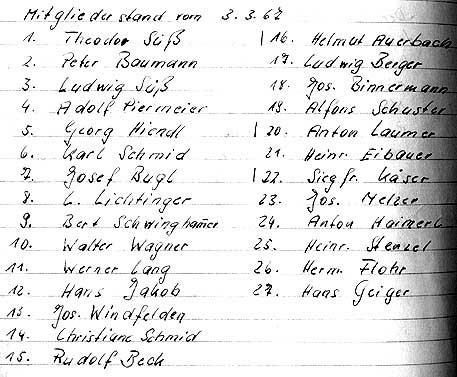 Mitgliederstand vom 3.3.67
1. Theodor Süß
2. Peter Baumann
3. Ludwig Süß
4. Adolf Piermeier
5. Georg Hiendl
6. Karl Schmid
7. Josef Bugl
8. L. Lichtinger
9. Bert Schwingham̄er
10. Walter Wagner
11. Werner Lang
12. Hans Jakob
13. Jos. Windfelden
14. Christiane Schmid
15. Rudolf Beck
16. Helmut Auerbach
17. Ludwig Berger
18. Jos. Binnermann
19. Alfons Schuster
20. Anton Laumer
21. Heinr. Eibauer
22. Siegfr. Käser
23. Jos. Melzer
24. Anton Haimerl
25. Heinr. Stenzel
26. Herm. Flohr
27. Hans Geiger